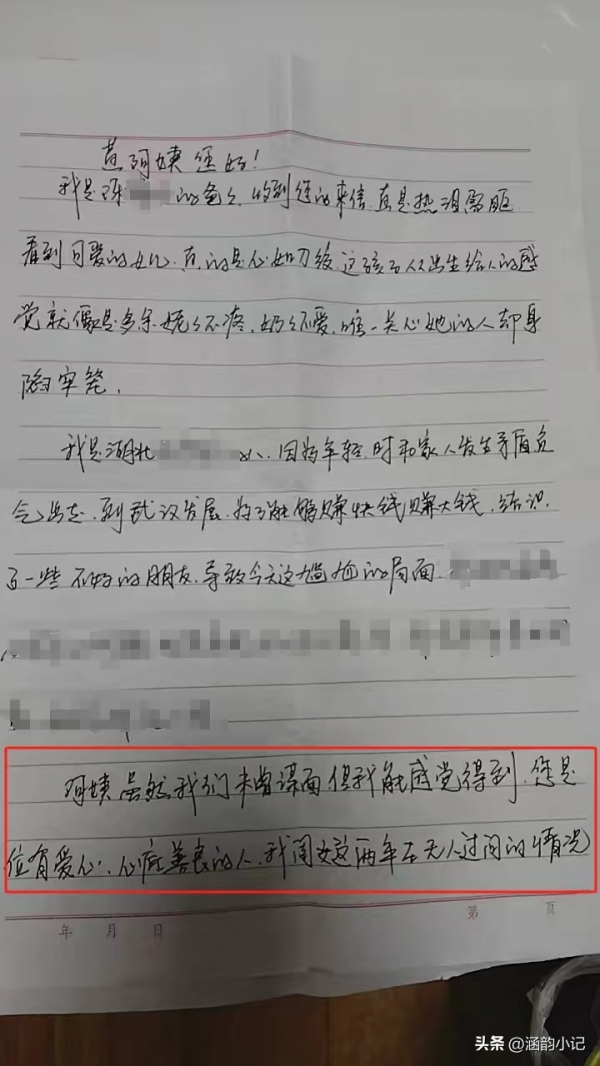 黄阿姨您好!
我是陈 的爸爸,收到您的来信,真是热泪盈眶
看到可爱的女儿,真的是心如刀绞,这孩子从出生给人的感
觉就像是多余,姥姥不疼,奶奶不爱,唯一关心她的人却身
陷牢笼,
我是湖北 人,因为年轻时和家人发生矛盾负
气出走,到武汉发展,为了能够赚快钱赚大钱,结识
了一些不好的朋友,导致今天这尴尬的局面
阿姨虽然我们未曾谋面但我能感觉得到,您是
位有爱心,心底善良的人,我闺女这两年在无人过问的情况
年 月 日
第 页
头条 @涵韵小记